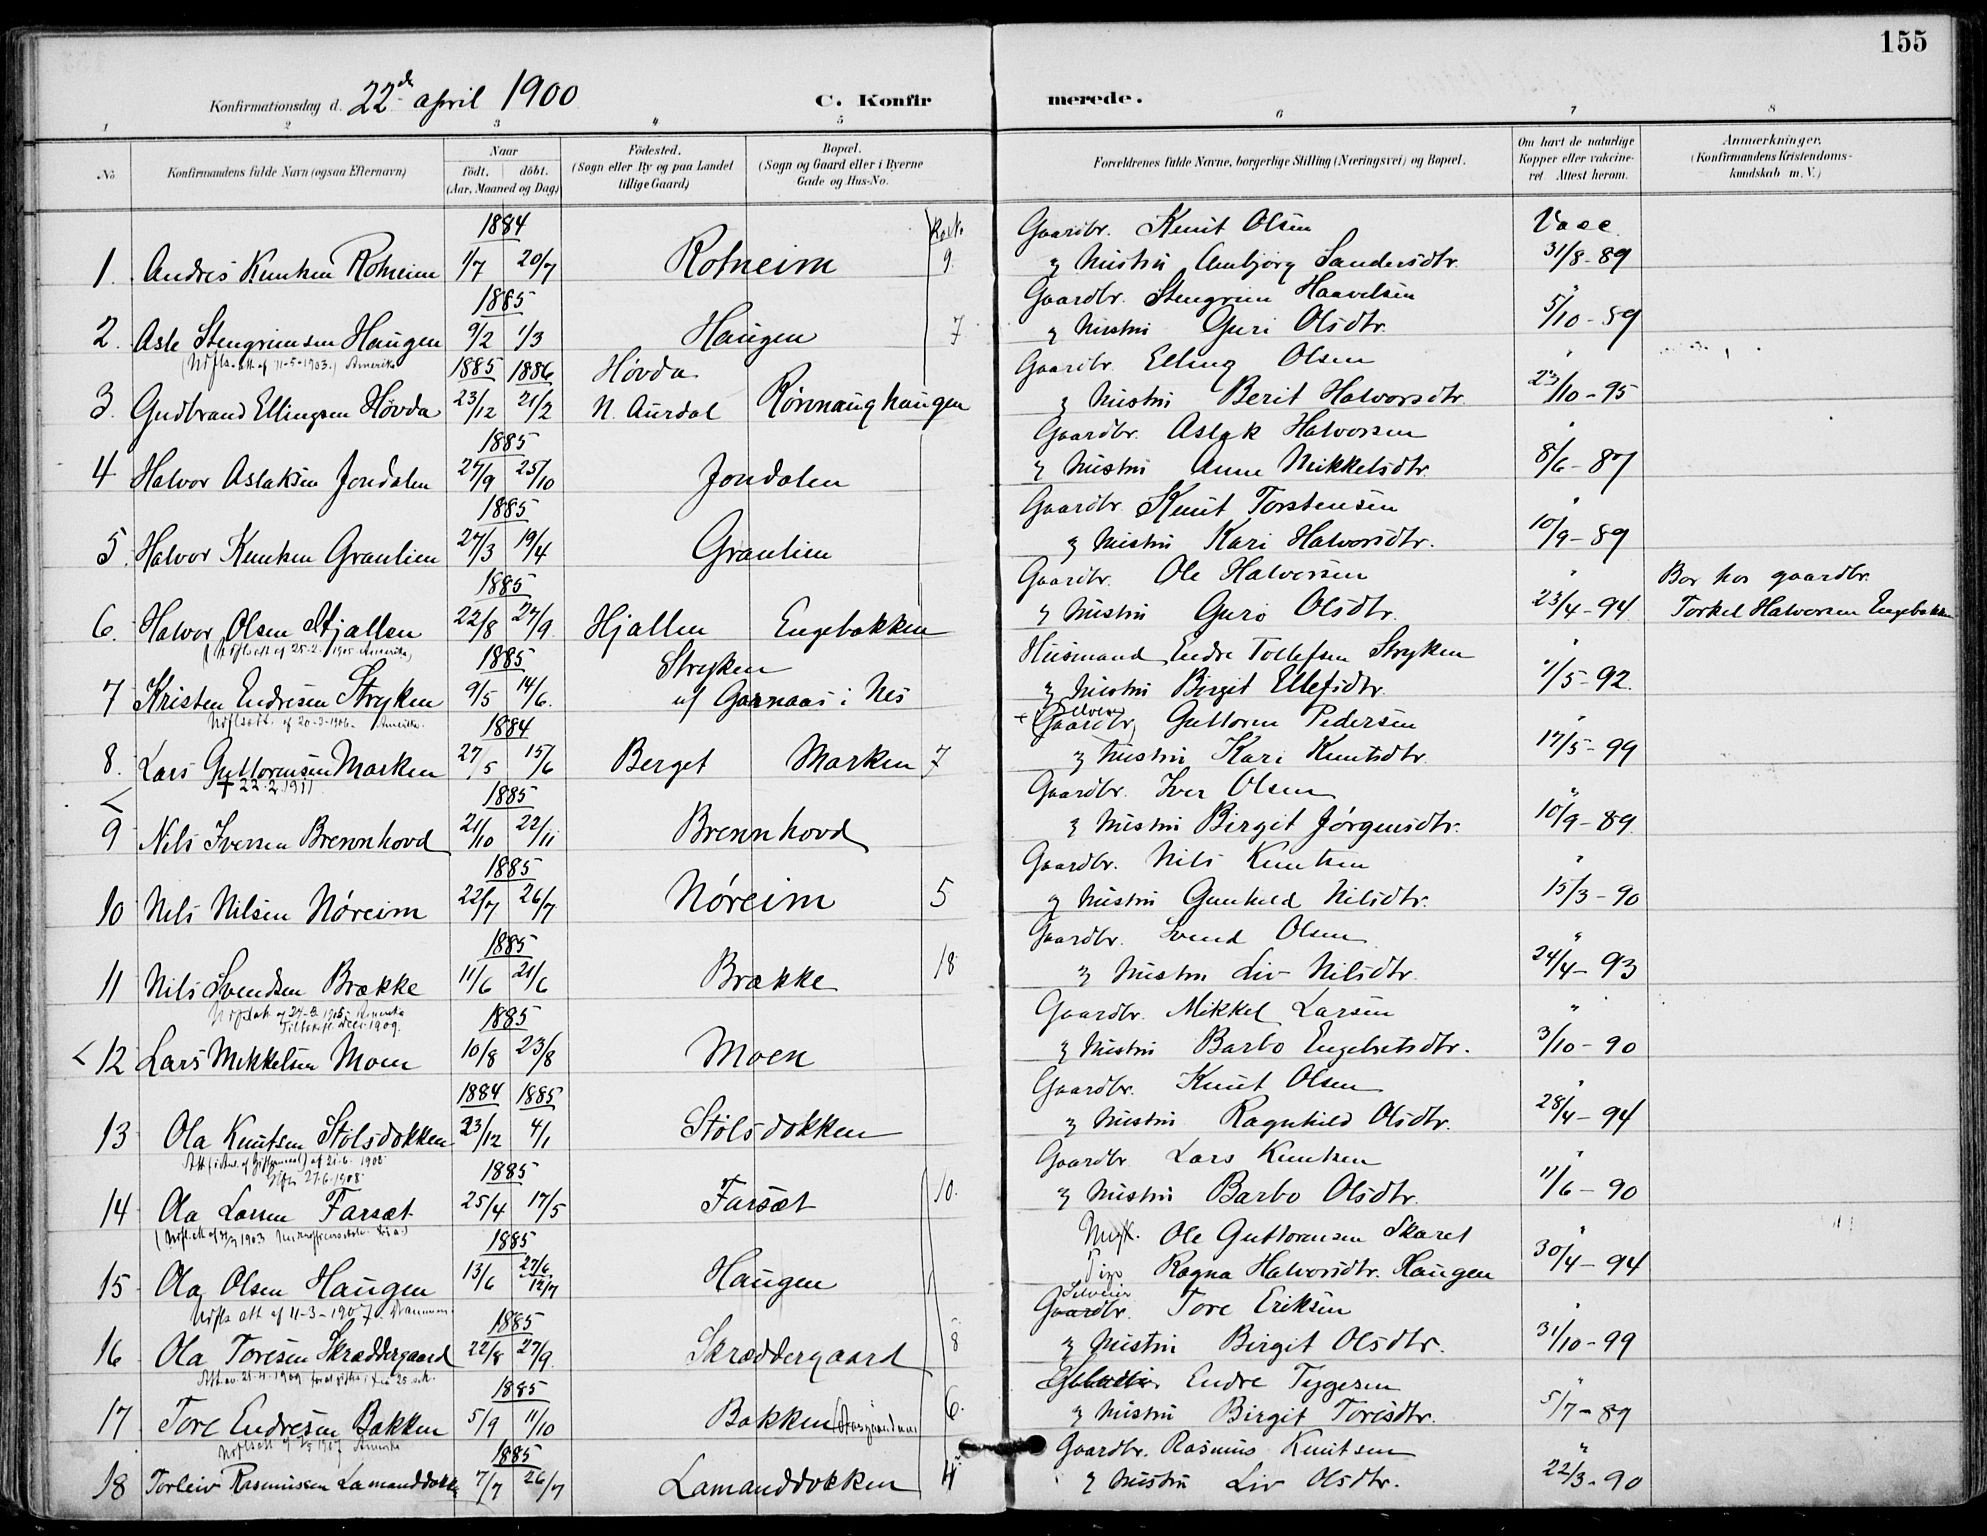 155
Konfirmationsdag d. 22de april 1900 C. Konfirmerede.
1 2 3 4 5 6 7 8
No Konfirmandens fulde Navn (ogsaa Efternavn) Naar født. døbt. (Aar, Maaned og Dag) Fødested. (Sogn eller By og paa Landet tillige Gaard) Bopæl. (Sogn og Gaard eller i Byerne Gade og Hus-No. Forældrenes fulde Navne, borgerlige Stilling (Næringsvei) og Bopæl. Om havt de naturlige Kopper eller vaccineret Attest herom. Anmærkninger. (Konfirmandens Kristendomskundskab m. V.)
1884 Gaardbr. Knut Olsen Vacc.
1. Andres Knutsen Rotneim 1/7 20/7 Rotneim 9. & Hustru Ambjørg Sandersdtr. 31/8-89
1885 Gaardbr. Stengrim Haavelsen "
2. Asle Stengrimsen Haugen 9/2 1/3 Haugen 7 & Hustru Guri Olsdtr. 5/10-89
(Udfl. att. af 11-5-1903. Amerika
1885 1886 Høvda Gaardbr. Elling Olsen "
3. Gudbrand Ellingsen Høvda 23/12 21/2 N. Aurdal Rønnaughaugen & Hustru Berit Halvorsdtr. 23/10-95
1885 Gaardbr. Aslak Halvorsen "
4 Halvor Aslaksen Jondalen 27/9 25/10 Jondalen & Hustru Anne Mikkelsdtr. 8/6-87
1885 Gaardbr. Knut Torstensen "
5. Halvor Knutsen Granlien 27/3 19/4 Granlien & Hustru Kari Halvorsdtr. 10/9-89
1885 Gaardbr. Ole Halvorsen " Bor hos gaardbr.
6. Halvor Olsen Hjallen 22/8 27/9 Hjallen Engebakken & Hustru Guro Olsdtr. 23/4-94 Torkel Halvorsen Engebakken
(Udfl. att af 25-2-1905 Amerika)
1885 Stryken Husmand Endre Tollefsen Stryken "
7 Kristen Endresen Stryken 9/5 14/6. u/ Garnaas i Nes & Hustru Birgit Ellefsdtr. 7/5-92.
Udfl. att. af 20-3-1906. Amerika.
1884 + (Gaardbr.) Guttorm Pedersen "
8. Lars Guttormsen Marken 27/5 15/6 Berget Marken 7 & Hustru Kari Knutsdtr. 17/5-99
+ 22.2.1911
1885 Gaardbr. Iver Olsen "
9 Nils Iversen Brennhovd 21/10 22/11 Brennhovd & Hustru Birgit Jørgensdtr. 10/9-89
1885 Gaardbr. Nils Knutsen "
10 Nils Nilsen Nøreim 22/7 26/7 Nøreim 5 & Hustru Gunhild Nilsdtr. 15/3-90
1885 Gaardbr. Svend Olsen "
11 Nils Svendsen Brække 11/6 21/6 Brække 18 & Hustru Liv Nilsdtr. 24/4-93
Udfl. att af 1905 Amerika
1909.
1885 Gaardbr. Mikkel Larsen "
< 12 Lars Mikkelsen Moen 10/8 23/8 Moen & Hustru Barbo Engebretsdtr. 3/10-90
1884 1885 Gaardbr. Knut Olsen "
13 Ola Knutsen Stølsdokken 23/12 4/1 Stølsdokken & Hustru Ragnhild Olsdtr. 28/4-94
af 21-6-1908
21-6-1908
1885 Gaardbr. Lars Knutsen "
14 Ola Larsen Farsæt 25/4 17/5 Farsæt 10. & Hustru Barbo Olsdtr. 11/6-90
1885 Ungk. Ole Guttormsen Skaret "
15 Ola Olsen Haugen 13/6 27/6 12/7 Haugen Pige Ragna Halvorsdtr. Haugen 30/4-94
Udfl. att af 11-3-1907. Drammen.
1885 Selveier Gaardbr. Tore Eriksen "
16 Ola Toresen Skræddergaard 22/8 27/9. Skræddergaard 8 & Hustru Birgit Olsdtr. 31/10-99
Att. av 21.4.1909
1885 Endre Tyggesen "
17 Tore Endresen Bakken 5/9 11/10 Bakken 6. & Hustru Birgit Toresdtr. 5/7-89
Udfl. att 1907 Amerika
1885 Gaardbr. Rasmus Knutsen "
18 Torleiv Rasmussen Lamanddokk 7/7 26/7 Lamanddokken 4 & Hustru Liv Olsdtr. 22/3-90